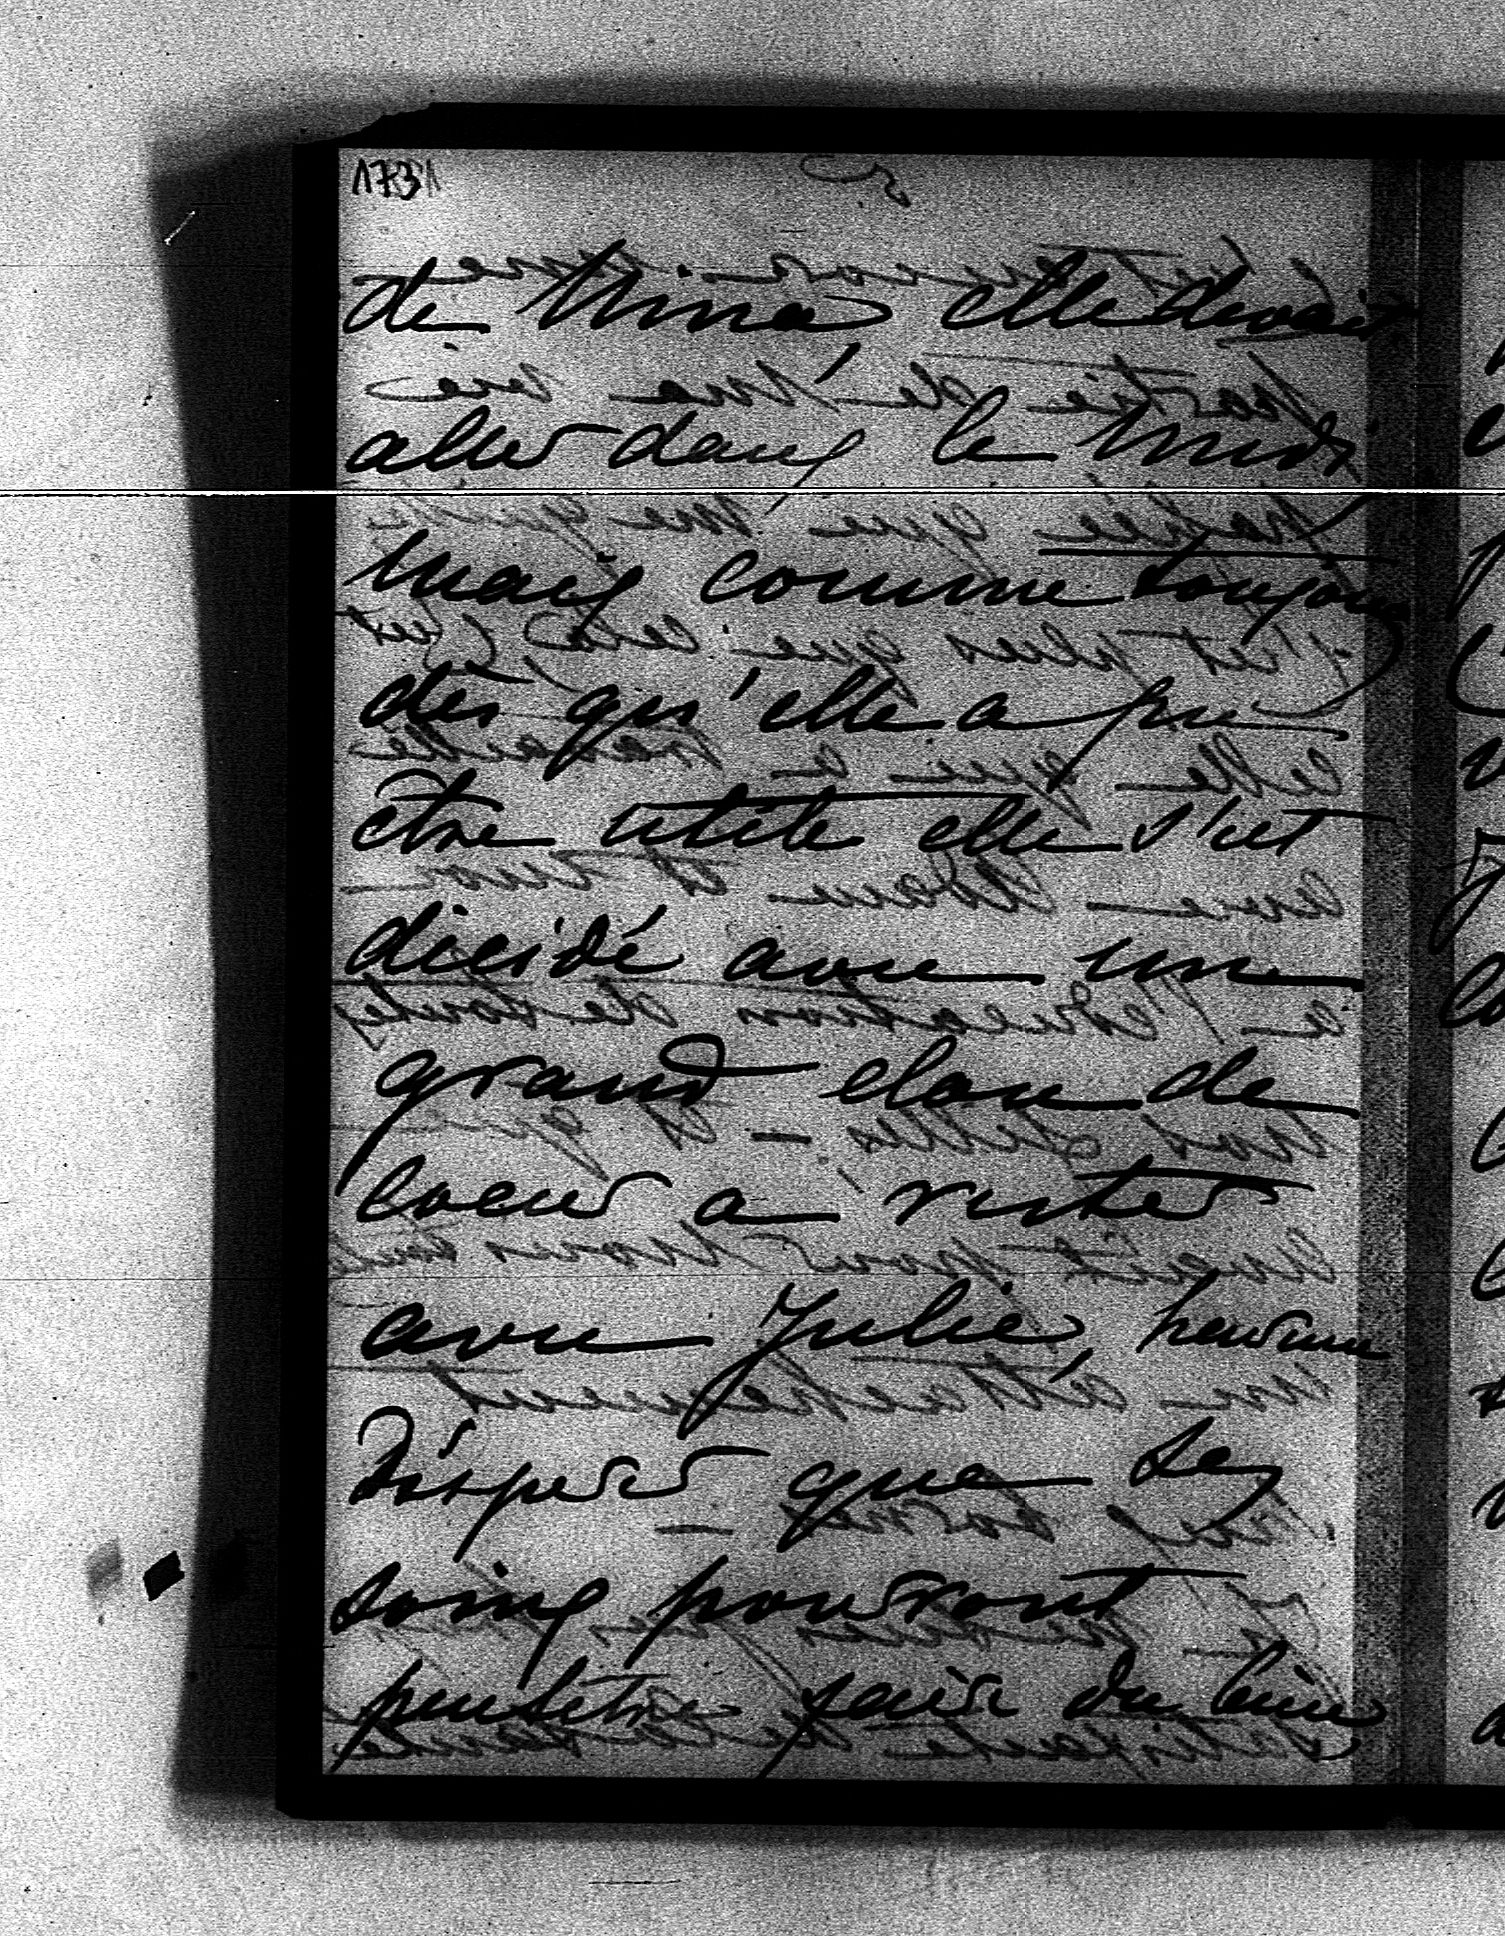 1731
de Mina elle devait
aller dans le Midi
mais comme toujours
dès qu'elle a pu
être utile elle s'est
décidé avec un
grand elan de
coeur a rester
avec Julie,
d'esperer que ses
soins pourront
peutêtre faire du bien